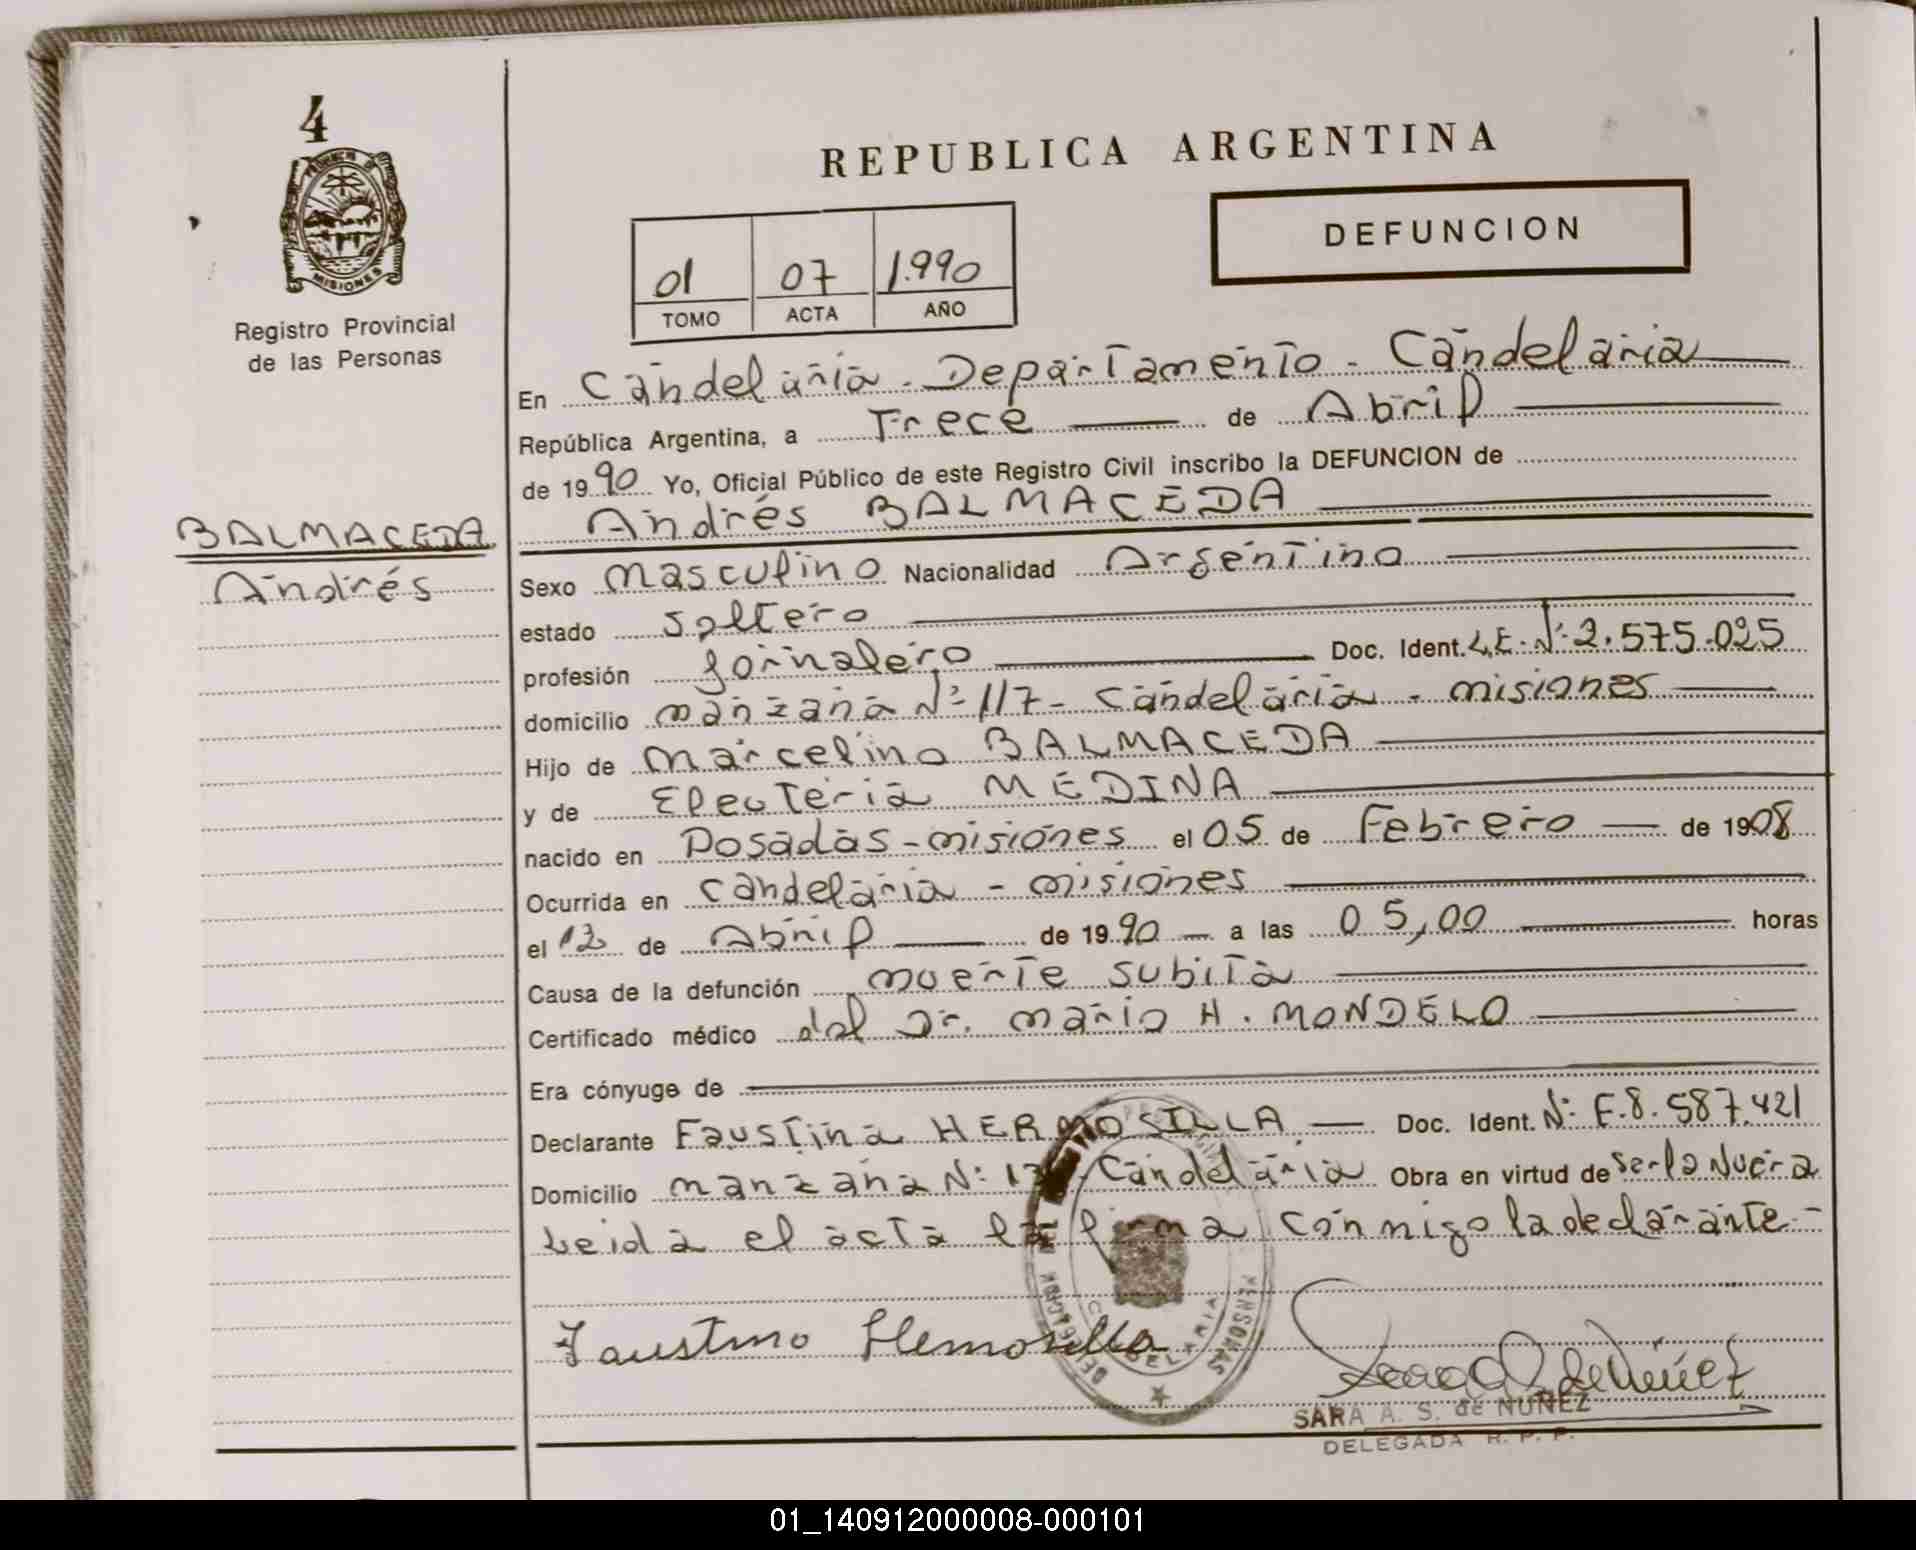 4
PROVINCIA DE
MISIONES
Registro Provincial
de las Personas
REPUBLICA ARGENTINA
DEFUNCION
01 07 1.990
TOMO ACTA AÑO
En Candelaria - Departamento - Candelaria
República Argentina, a Trece de Abril
de 1990 Yo, Oficial Público de este Registro Civil inscribo la DEFUNCION de
Andrés BALMACEDA
BALMACEDA
Andrés
Sexo Masculino Nacionalidad Argentino
estado Soltero
profesión Jornalero Doc. Ident. L.E. Nº 2.575.025
domicilio manzana Nº 117 - Candelaria - misiones
Hijo de Marcelino BALMACEDA
y de Eleuteria MEDINA
nacido en Posadas - misiones el 05 de Febrero de 1908
Ocurrida en Candelaria - misiones
el de Abril de 1990 a las 05,00 horas
Causa de la defunción muerte subita
Certificado médico del Dr. Mario H. MONDELO
Era cónyuge de
Declarante Faustina HERMOSILLA Doc. Ident. Nº F.8.587.421
Domicilio manzana Nº Candelaria Obra en virtud de Ser la Nuera
Leida el acta la firma conmigo la declarante.-
Faustino Hemosilla
CANDELARIA
PERSONAS
SARA A. S. de NUÑEZ
DELEGADA R. P. P.
01_140912000008-000101